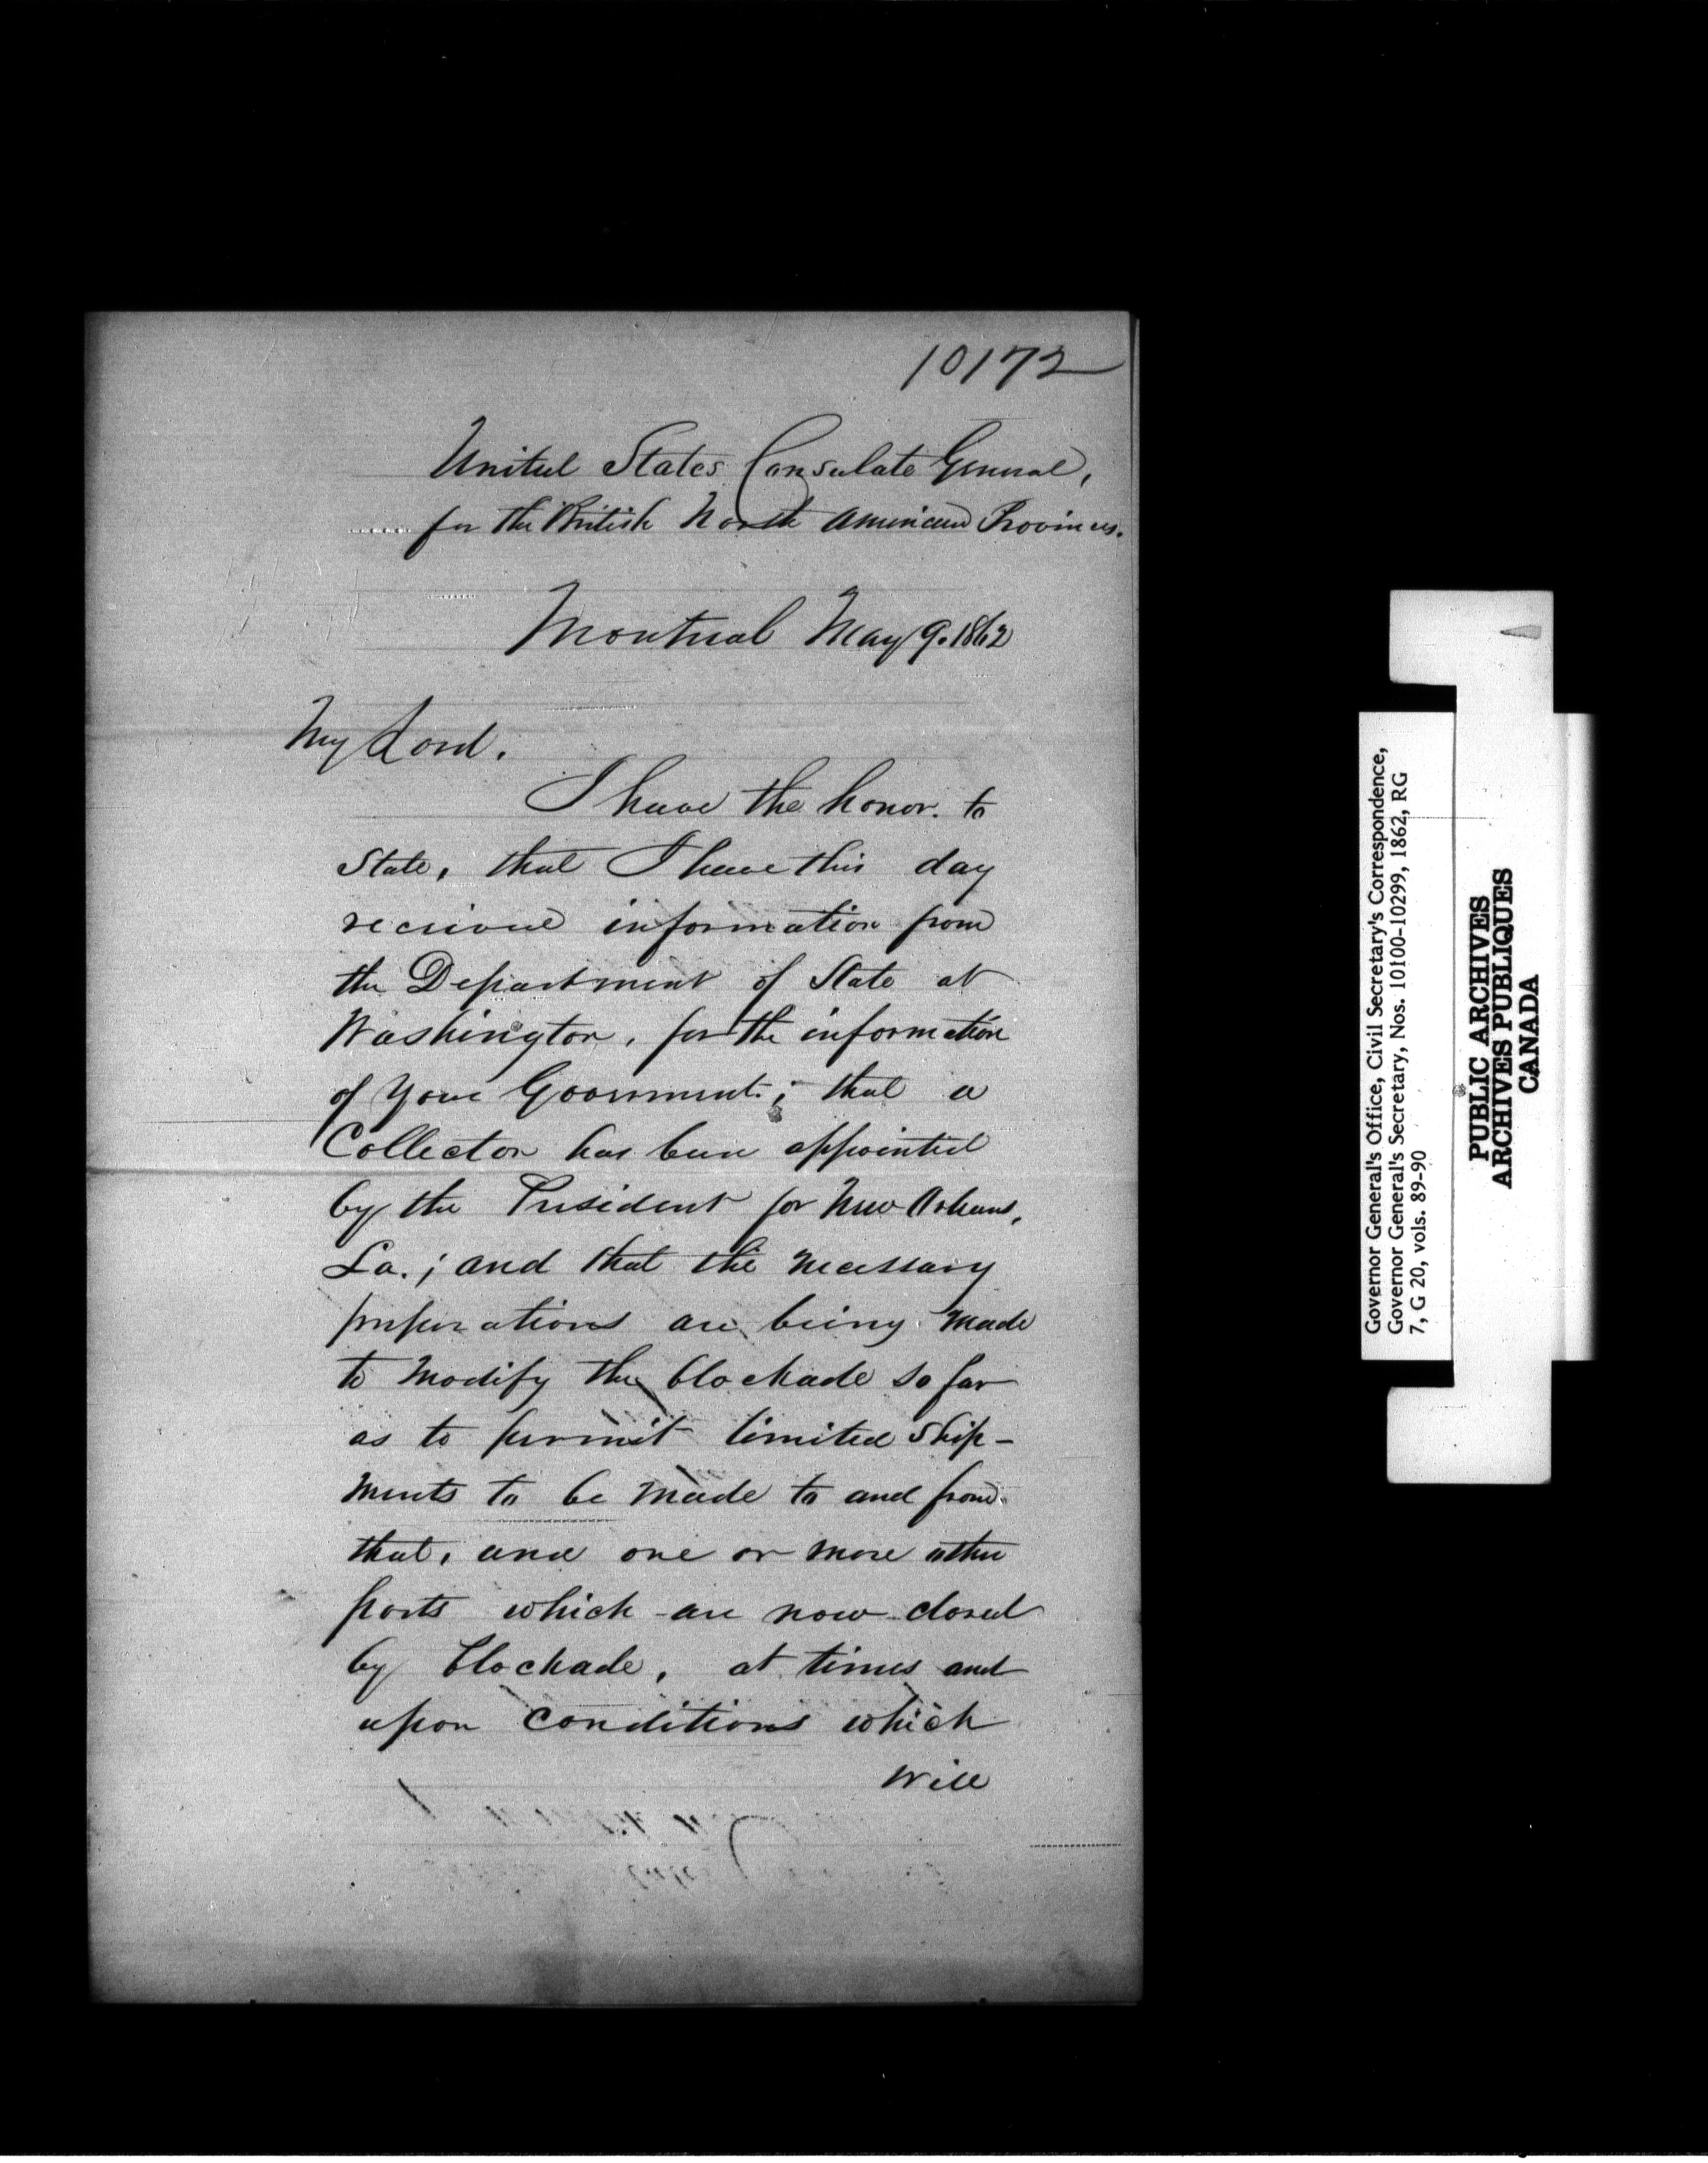 10172
United States Consulate General,
for the British North American Provinces.
Montreal May 9. 1862
My Lord.
I have the honor. to
State, that I have this day
received information from
the Department of State at
Washington, for the information
of Your Government; that a
Collector has been appointed
by the President for New Orleans,
La.; and that the necessary
preparations are being made
to modify the blockade so far
as to permit limited Ship-
ments to be made to and from
that, and one or more other
ports which are now closed
by blockade, at times and
upon conditions which
will
Governor General's Office, Civil Secretary's Correspondence,
Governor General's Secretary, Nos. 10100-10299, 1862, RG
7, G 20, vols. 89-90
PUBLIC ARCHIVES
ARCHIVES PUBLIQUES
CANADA